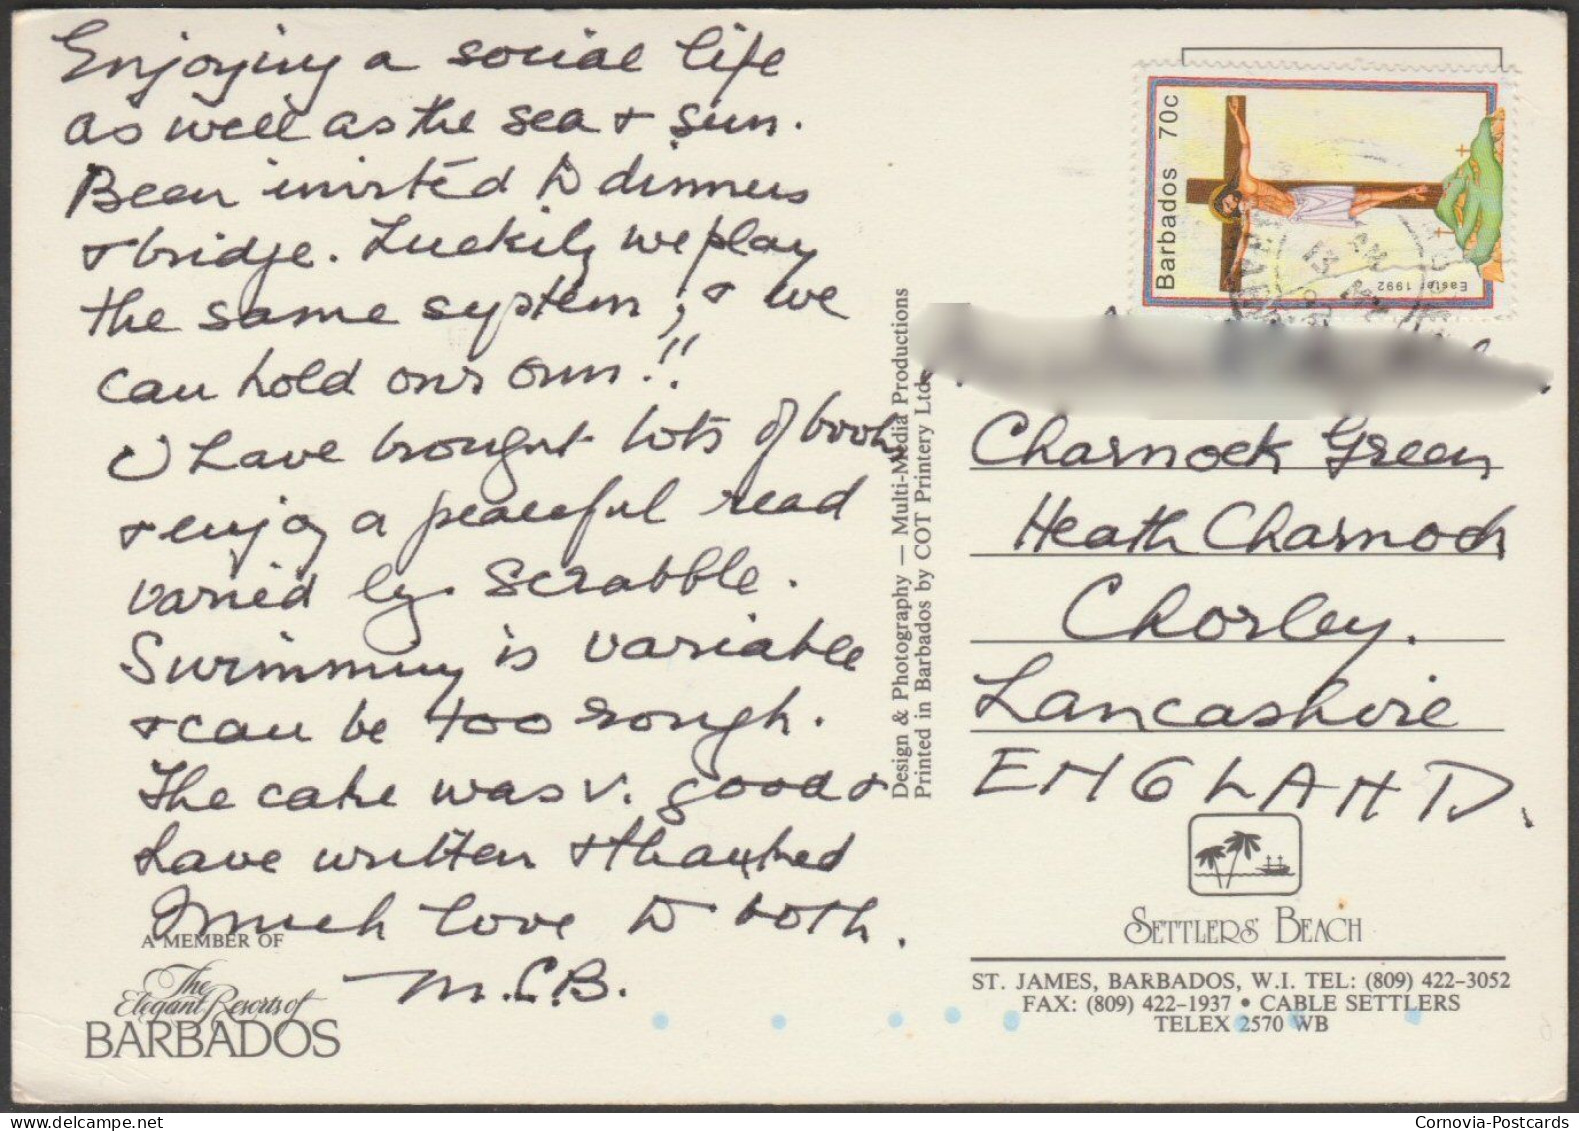 Enjoying a social life
as well as the sea & sun.
Been invited to dinners
& bridge. Luckily we play
the same system, & we
can hold our own!!
I have brought lots of books
& enjoy a peaceful read
varied by Scrabble.
Swimming is variable
& can be too rough.
The cake was v. good &
have written & thanked
Much love to both.
M.C.B.
A MEMBER OF
The
Elegant Resorts of
BARBADOS
Design & Photography — Multi-Media Productions
Printed in Barbados by COT Printery Ltd.
Barbados 70c
Easter 1992
Charnock Green
Heath Charnock
Chorley.
Lancashire
ENGLAND.
SETTLERS' BEACH
ST. JAMES, BARBADOS, W.I. TEL: (809) 422-3052
FAX: (809) 422-1937 • CABLE SETTLERS
TELEX 2570 WB
Cornovia-Postcards